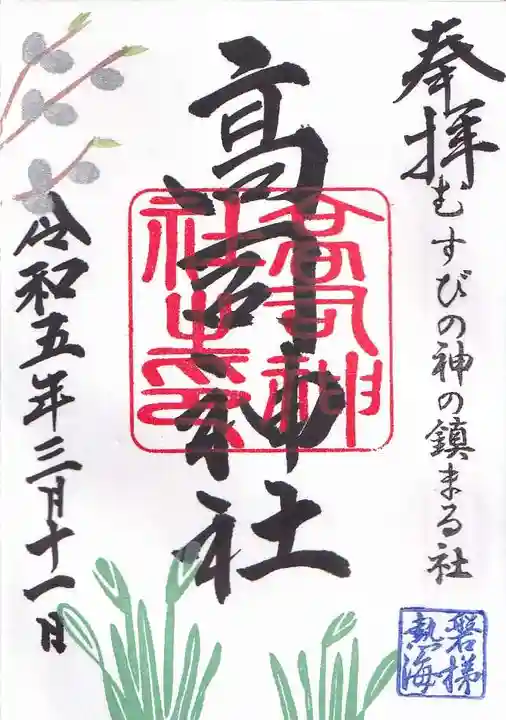 奉拝
むすびの神の鎮まる社
高司神社
高司神
社之印
令和五年三月十一日
磐梯
熱海